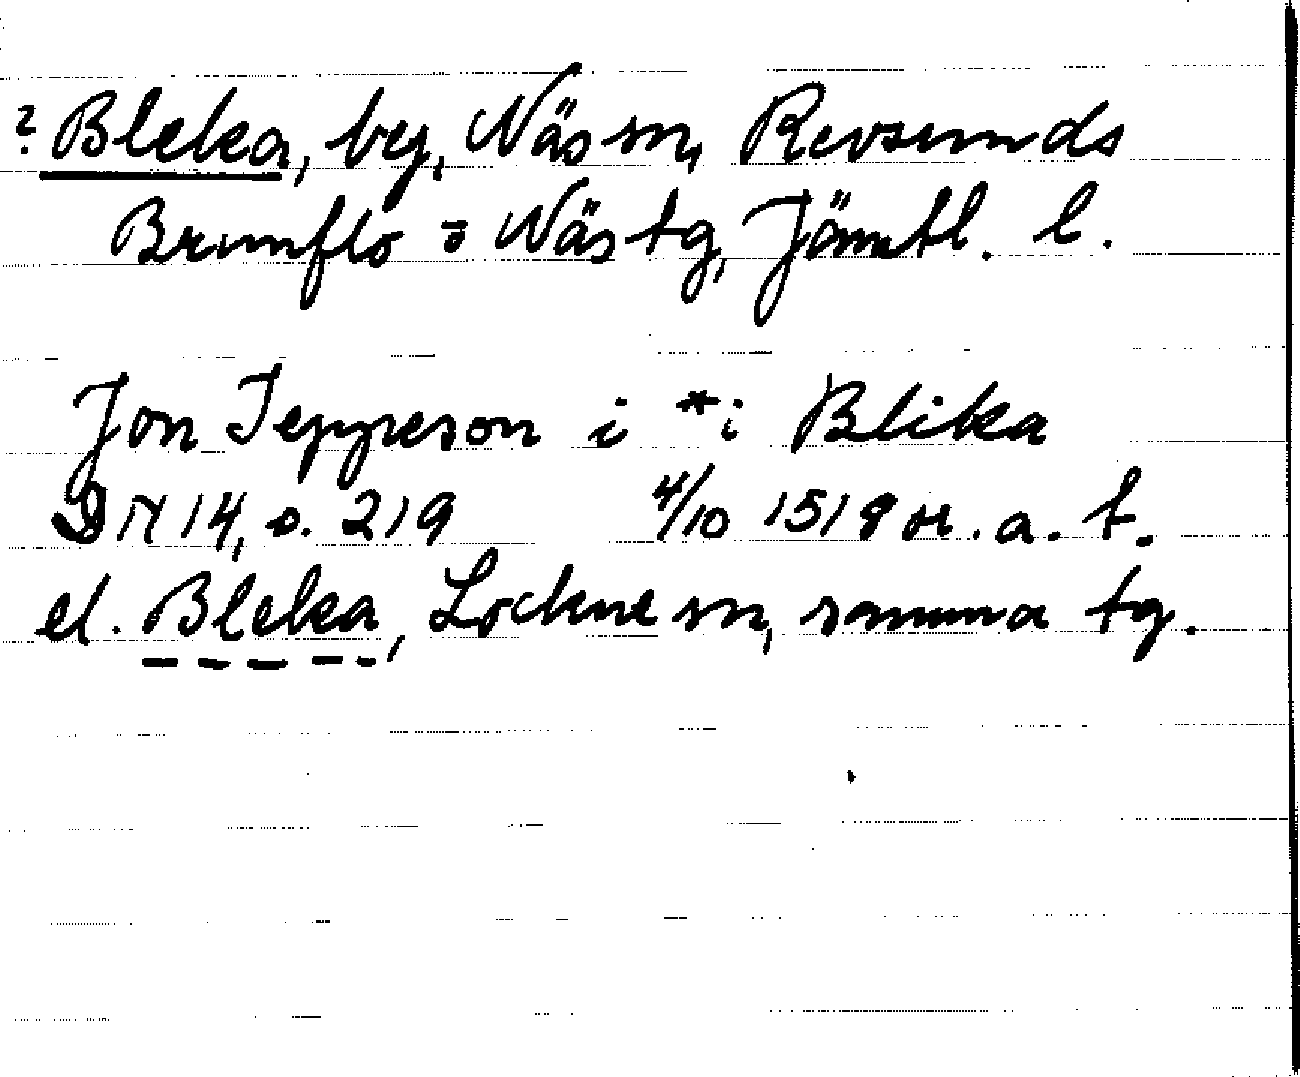 ? Bleka, by, Näs sn, Revsunds
Brunflo o Näs tg, Jämtl. l.
Jon Jeppeson i *i Blika
DN 14, s. 219 4/10 1518 or. a. b.
el. Bleka, Lockne sn, samma tg.